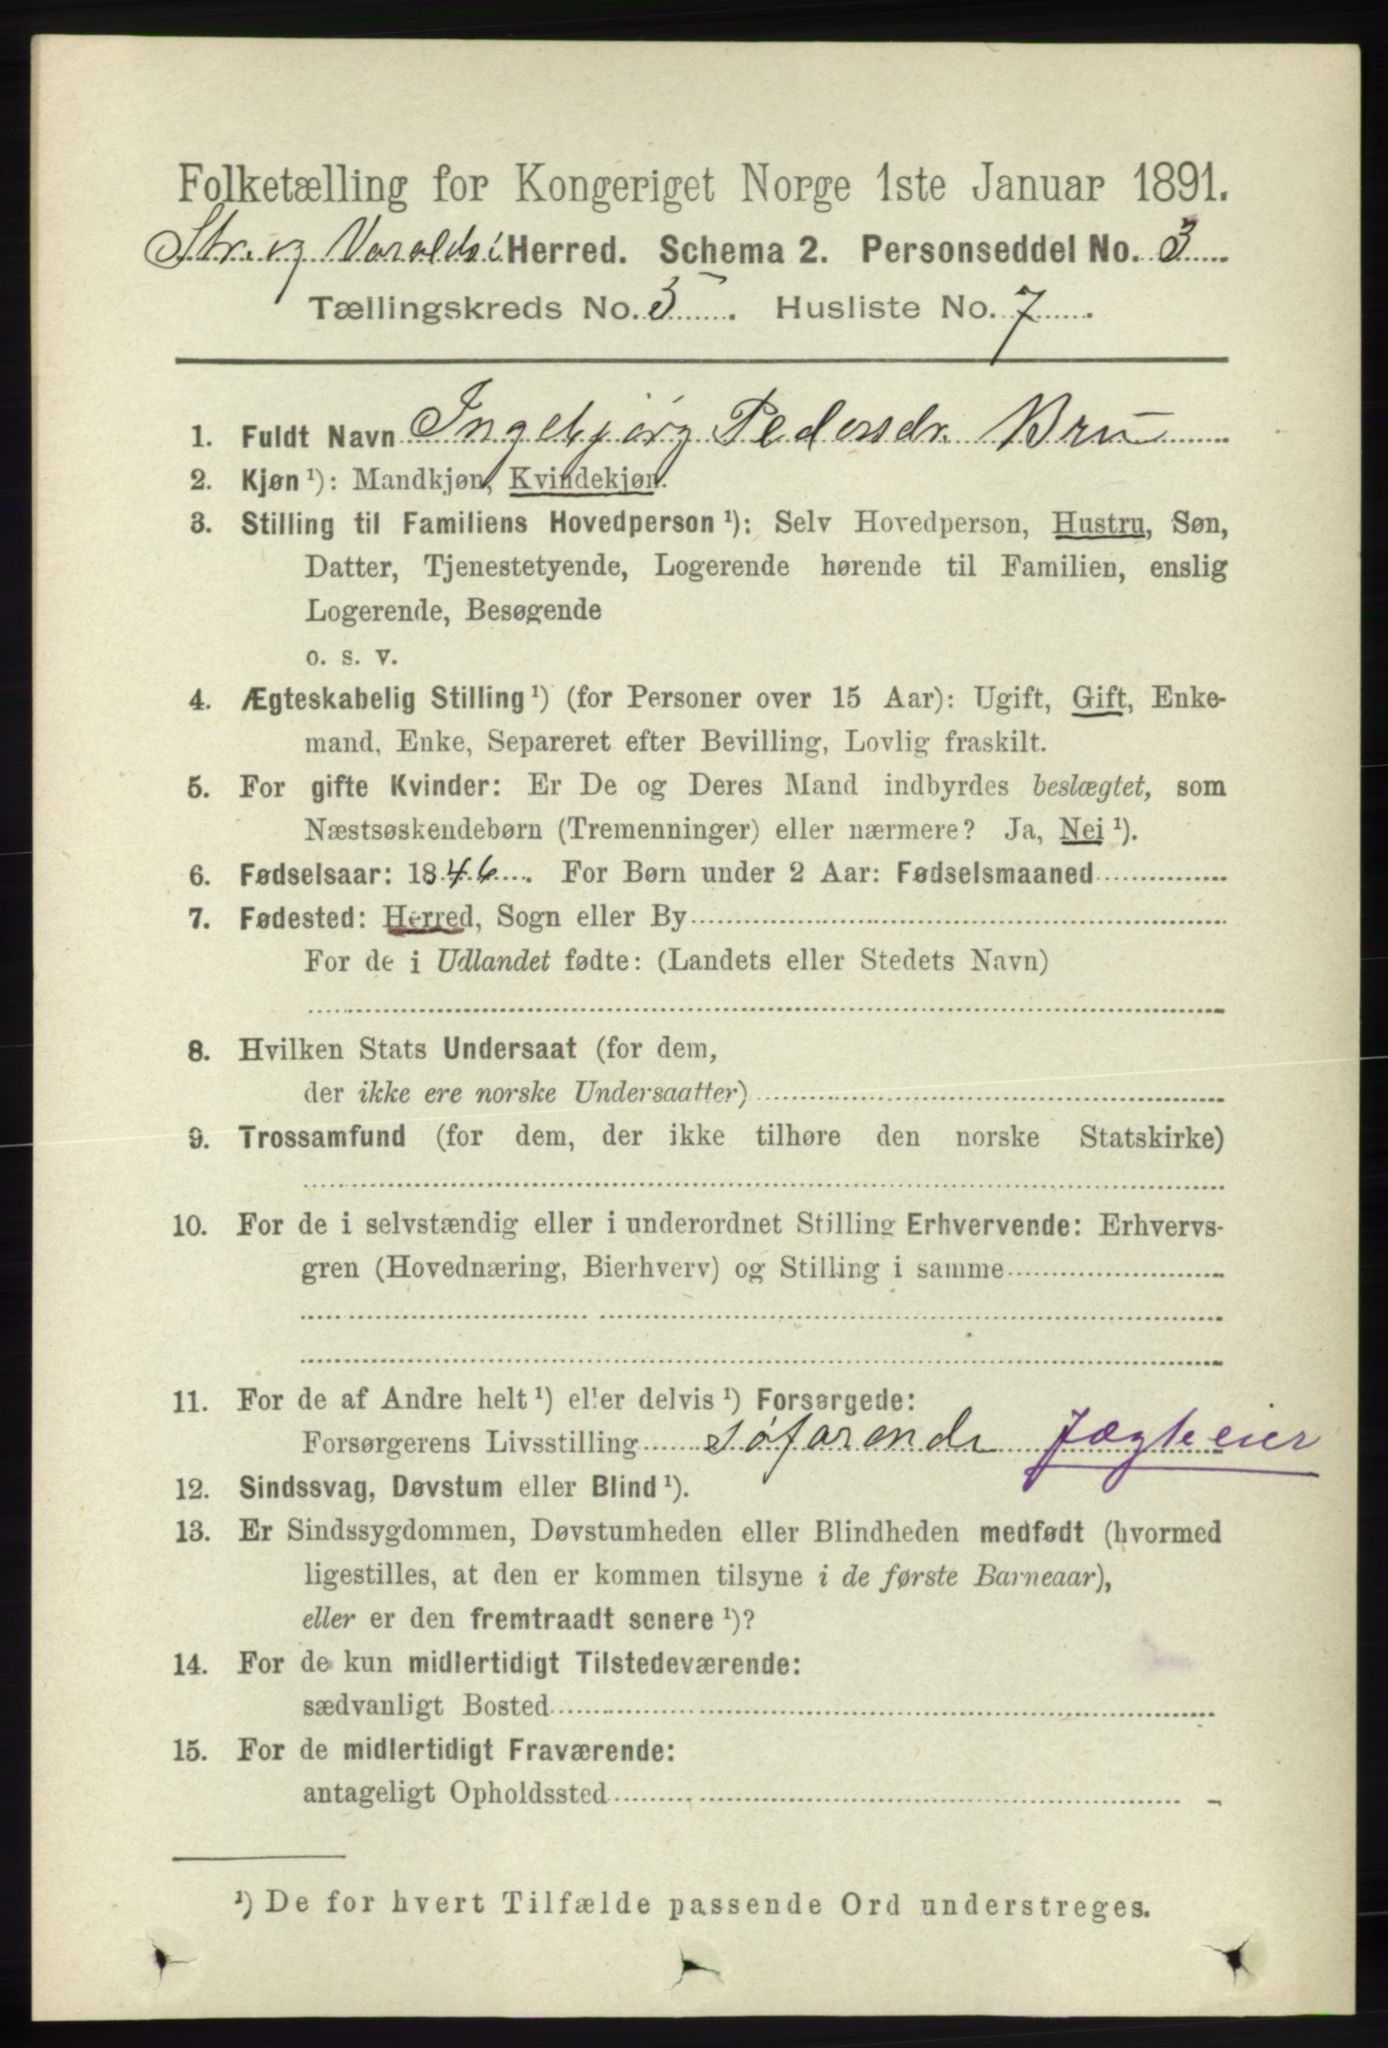 Folketælling for Kongeriget Norge 1ste Januar 1891.
Str. og Varaldsö Herred. Schema 2. Personseddel No. 3
Tællingskreds No. 5. Husliste No. 7.
1. Fuldt Navn Ingebjørg Pedersdr. Bru
2. Kjøn ¹): Mandkjøn, Kvindekjøn.
3. Stilling til Familiens Hovedperson ¹): Selv Hovedperson, Hustru, Søn,
Datter, Tjenestetyende, Logerende hørende til Familien, enslig
Logerende, Besøgende
o. s. v.
4. Ægteskabelig Stilling ¹) (for Personer over 15 Aar): Ugift, Gift, Enke-
mand, Enke, Separeret efter Bevilling, Lovlig fraskilt.
5. For gifte Kvinder: Er De og Deres Mand indbyrdes beslægtet, som
Næstsøskendebørn (Tremenninger) eller nærmere? Ja, Nei ¹).
6. Fødselsaar: 1846. For Børn under 2 Aar: Fødselsmaaned
7. Fødested: Herred, Sogn eller By
For de i Udlandet fødte: (Landets eller Stedets Navn)
8. Hvilken Stats Undersaat (for dem,
der ikke ere norske Undersaatter)
9. Trossamfund (for dem, der ikke tilhøre den norske Statskirke)
10. For de i selvstændig eller i underordnet Stilling Erhvervende: Erhvervs-
gren (Hovednæring, Bierhverv) og Stilling i samme
11. For de af Andre helt ¹) eller delvis ¹) Forsørgede:
Forsørgerens Livsstilling søfarende Jægteeier
12. Sindssvag, Døvstum eller Blind ¹).
13. Er Sindssygdommen, Døvstumheden eller Blindheden medfødt (hvormed
ligestilles, at den er kommen tilsyne i de første Barneaar),
eller er den fremtraadt senere ¹)?
14. For de kun midlertidigt Tilstedeværende:
sædvanligt Bosted
15. For de midlertidigt Fraværende:
antageligt Opholdssted
¹) De for hvert Tilfælde passende Ord understreges.